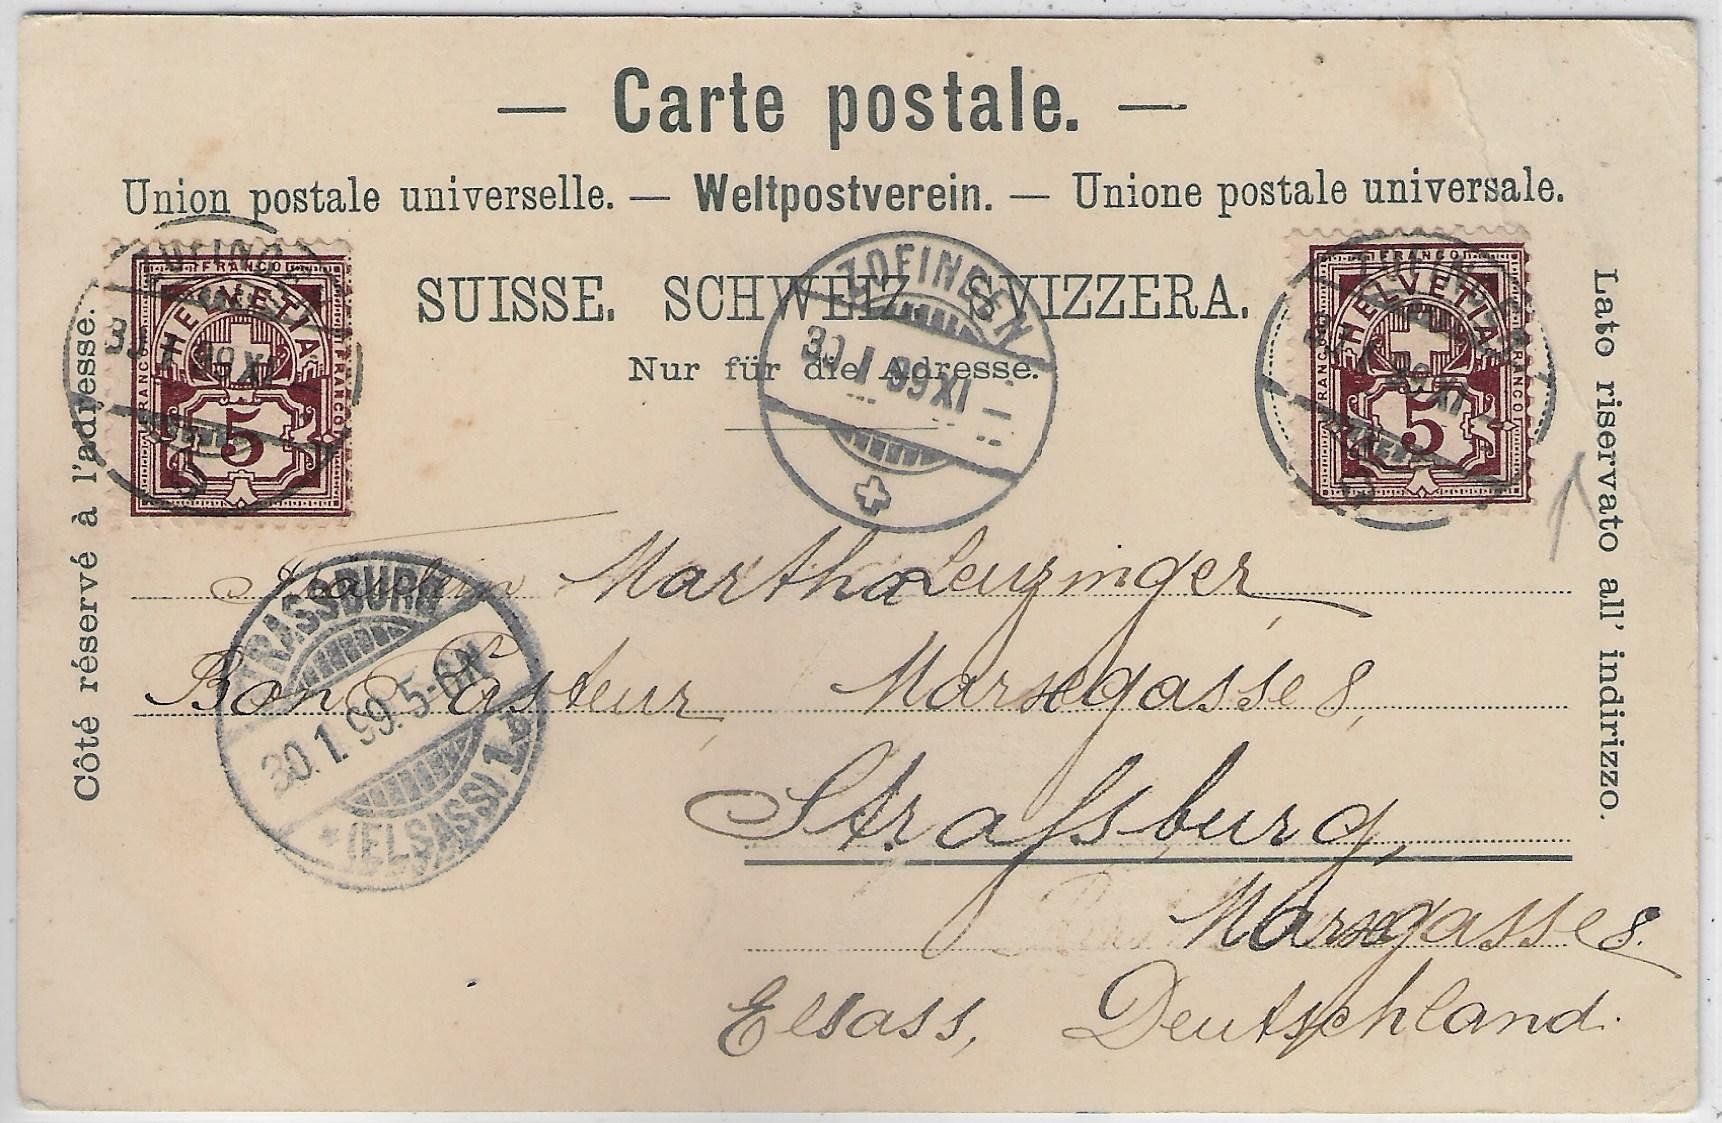 — Carte postale. —
Union postale universelle. — Weltpostverein. — Unione postale universale.
SUISSE. SCHWEIZ. SVIZZERA.
Nur für die Adresse.
Côté réservé à l'adresse.
Lato riservato all' indirizzo.
FRANCO
HELVETIA
FRANCO
FRANCO
5
ZOFINGEN
30. I 99 XI —
FRANCO
HELVETIA
FRANCO
FRANCO
5
Fraulein Martha Leuzinger
Bon Pasteur, Marxgasse 8,
Strassburg,
Marxgasse 8.
Elsass, Deutschland.
STRASSBURG
30. 1. 99. 5-6N
* (ELSASS) 1.